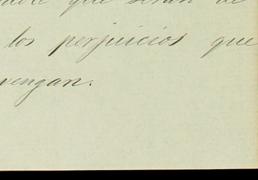 que serán de
los perjuicios que
vengan.